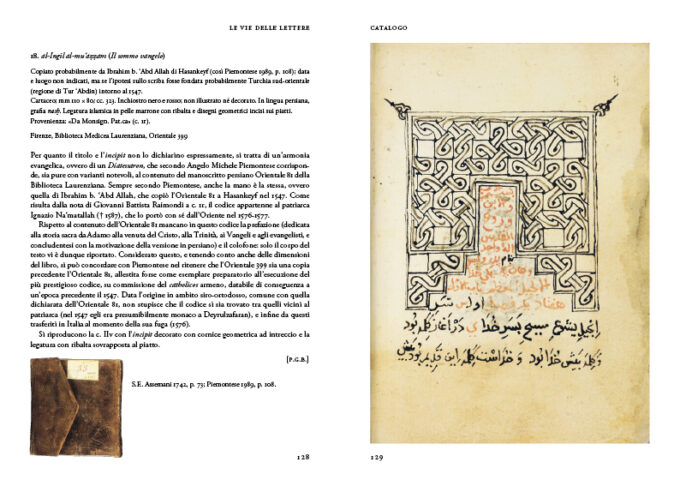 LE VIE DELLE LETTERE
18. al-Ingīl al-mu'aẓẓam (Il sommo vangelo)
Copiato probabilmente da Ibrahim b. 'Abd Allah di Hasankeyf (così Piemontese 1989, p. 108); data
e luogo non indicati, ma se l'ipotesi sullo scriba fosse fondata probabilmente Turchia sud-orientale
(regione di Tur 'Abdin) intorno al 1547.
Cartaceo; mm 110 × 80; cc. 323. Inchiostro nero e rosso; non illustrato né decorato. In lingua persiana,
grafia nasḫ. Legatura islamica in pelle marrone con ribalta e disegni geometrici incisi sui piatti.
Provenienza: «Da Monsign. Pat.ca» (c. 1r).
Firenze, Biblioteca Medicea Laurenziana, Orientale 399
Per quanto il titolo e l'incipit non lo dichiarino espressamente, si tratta di un'armonia
evangelica, ovvero di un Diatessaron, che secondo Angelo Michele Piemontese corrispon-
de, sia pure con varianti notevoli, al contenuto del manoscritto persiano Orientale 81 della
Biblioteca Laurenziana. Sempre secondo Piemontese, anche la mano è la stessa, ovvero
quella di Ibrahim b. 'Abd Allah, che copiò l'Orientale 81 a Hasankeyf nel 1547. Come
risulta dalla nota di Giovanni Battista Raimondi a c. 1r, il codice appartenne al patriarca
Ignazio Na'matallah († 1587), che lo portò con sé dall'Oriente nel 1576-1577.
Rispetto al contenuto dell'Orientale 81 mancano in questo codice la prefazione (dedicata
alla storia sacra da Adamo alla venuta del Cristo, alla Trinità, ai Vangeli e agli evangelisti, e
concludentesi con la motivazione della versione in persiano) e il colofone: solo il corpo del
testo vi è dunque riportato. Considerato questo, e tenendo conto anche delle dimensioni
del libro, si può concordare con Piemontese nel ritenere che l'Orientale 399 sia una copia
precedente l'Orientale 81, allestita forse come esemplare preparatorio all'esecuzione del
più prestigioso codice, su commissione del catholicos armeno, databile di conseguenza a
un'epoca precedente il 1547. Data l'origine in ambito siro-ortodosso, comune con quella
dichiarata dell'Orientale 81, non stupisce che il codice si sia trovato tra quelli vicini al
patriarca (nel 1547 egli era presumibilmente monaco a Deyrulzafaran), e infine da questi
trasferiti in Italia al momento della sua fuga (1576).
Si riproducono la c. IIv con l'incipit decorato con cornice geometrica ad intreccio e la
legatura con ribalta sovrapposta al piatto.
[P.G.B.]
S.E. Assemani 1742, p. 73; Piemontese 1989, p. 108.
128
CATALOGO
انجیل یشوع مسیح پسر خدای در آغاز کلمه بود
و کلمه پیش خدا بود و خداست کلمه این قدیم بود پیش
129